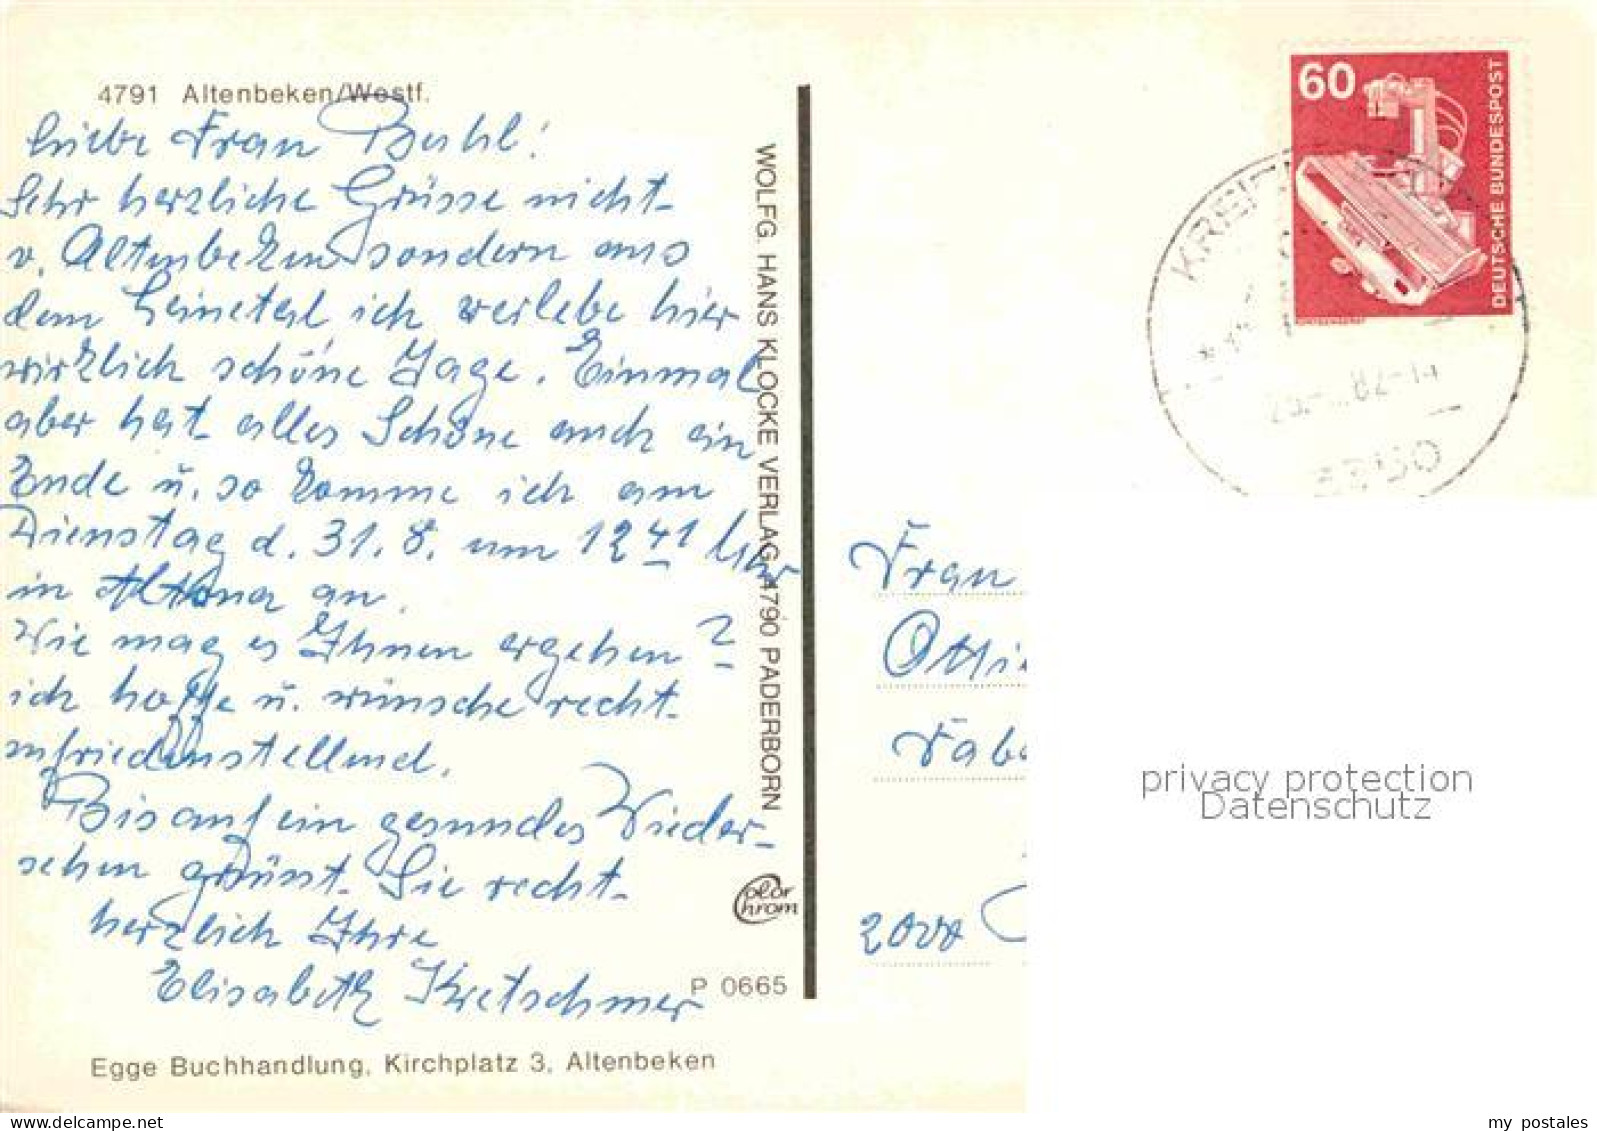 4791 Altenbeken/Westf.
Liebe Frau Buhl!
Sehr herzliche Grüsse nicht
v. Altenbeken sondern aus
dem Leinetal ich verlebe hier
wirklich schöne Tage. Einmal
aber hat alles Schöne auch ein
Ende u. so komme ich am
Dienstag d. 31. 8. um 12 41 Uhr
in Altona an.
Wie mag es Ihnen ergehen?
ich hoffe u. wünsche recht
zufriedenstellend.
Bis auf ein gesundes Wieder-
sehen grüsst Sie recht
herzlich Ihre
Elisabeth Kretschmer
Egge Buchhandlung, Kirchplatz 3, Altenbeken
WOLFG. HANS KLOCKE VERLAG, 4790 PADERBORN
Color
Chrom
P 0665
60
DEUTSCHE BUNDESPOST
82-14
Frau
Otti
2000
privacy protection
Datenschutz
my postales